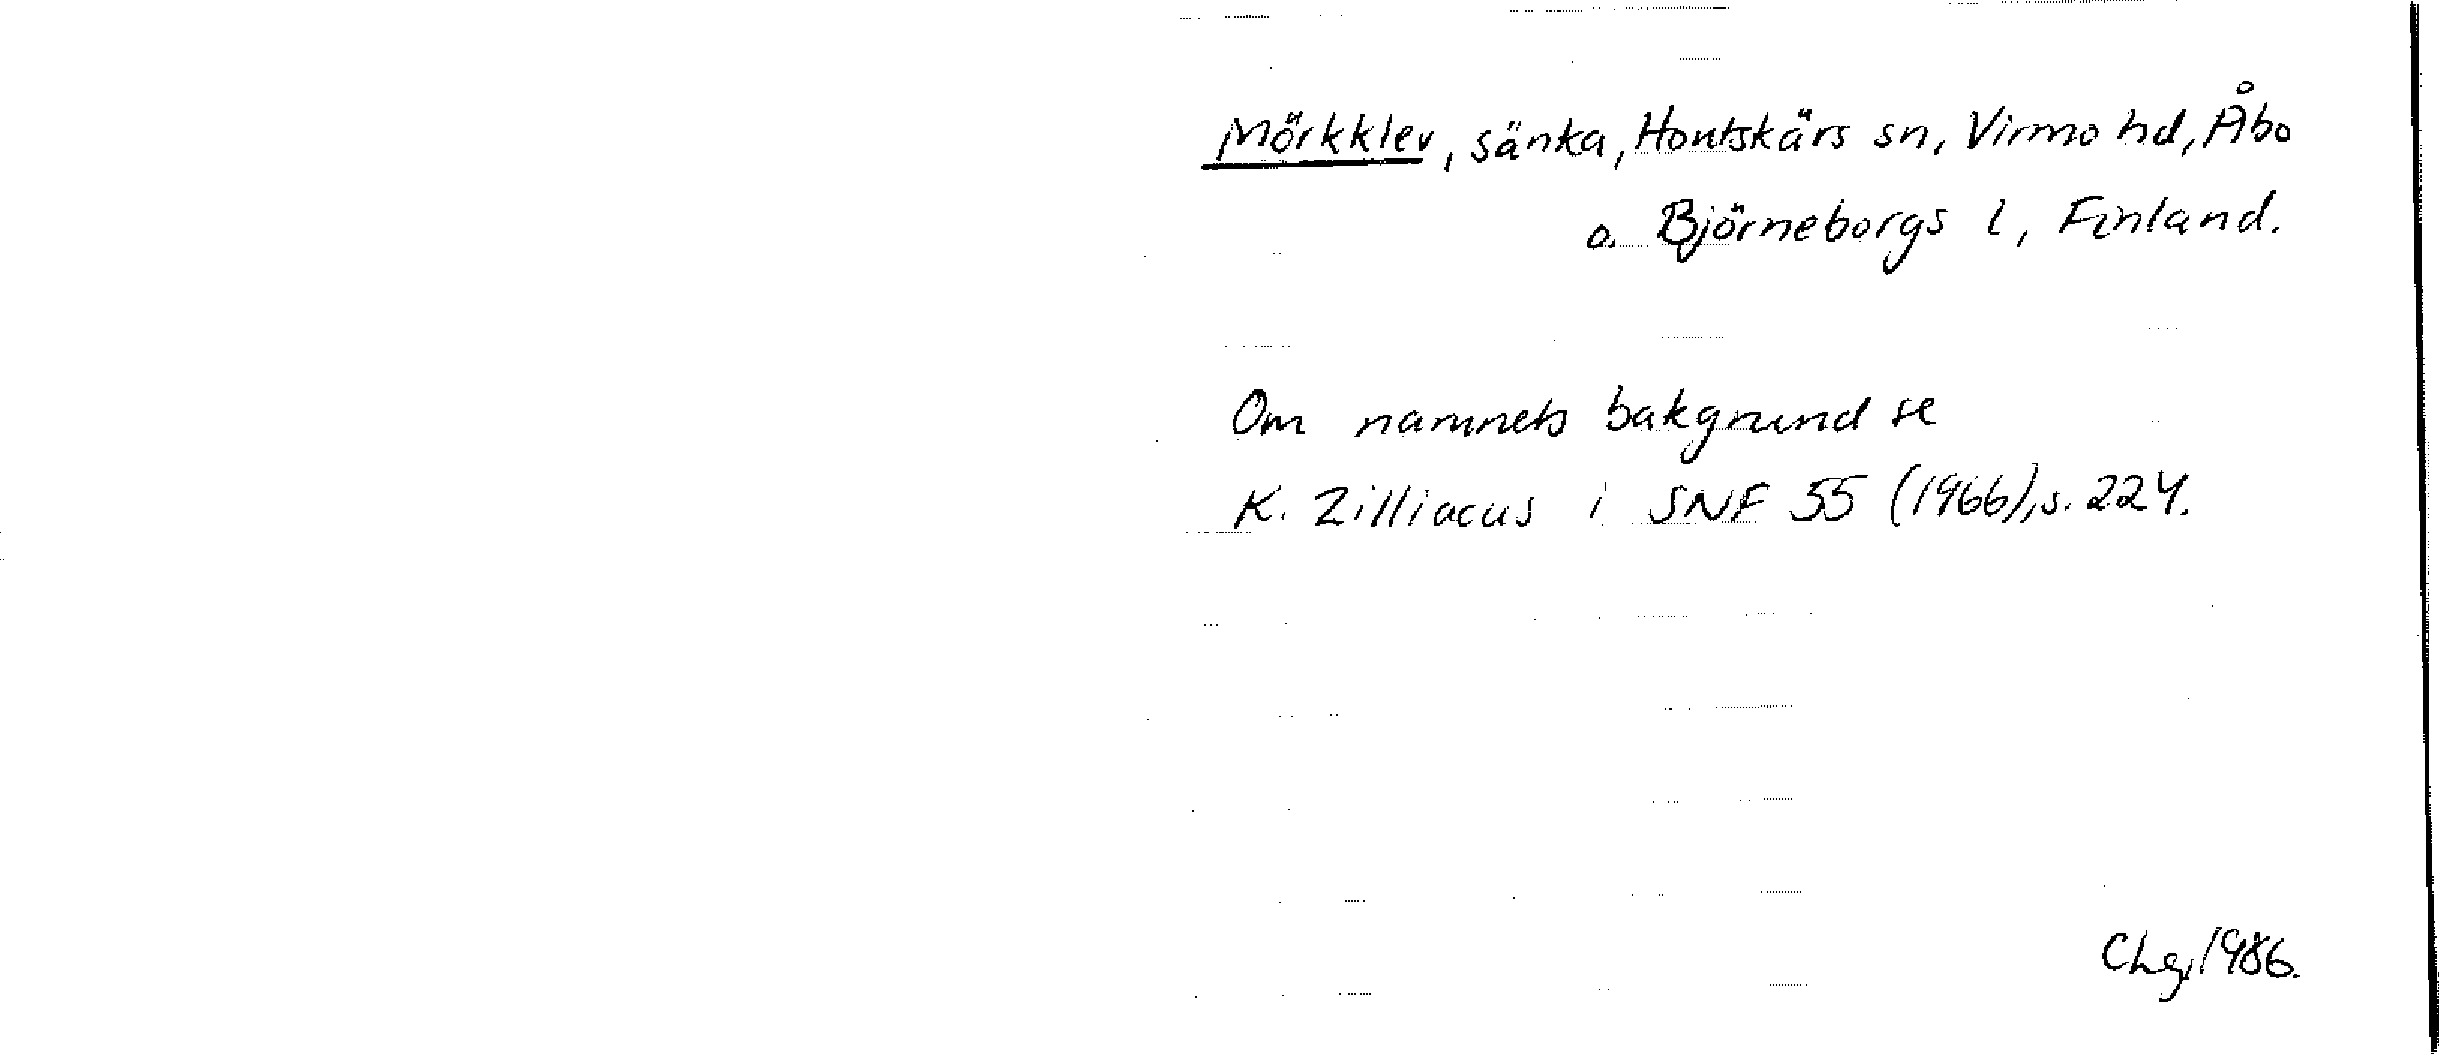 Mörkklev, sänka, Houtskärs sn, Virmo hd, Åbo
o. Björneborgs l, Finland.
Om namnets bakgrund se
K. Zilliacus i SNF 55 (1966), s. 224.
Chg, 1986.